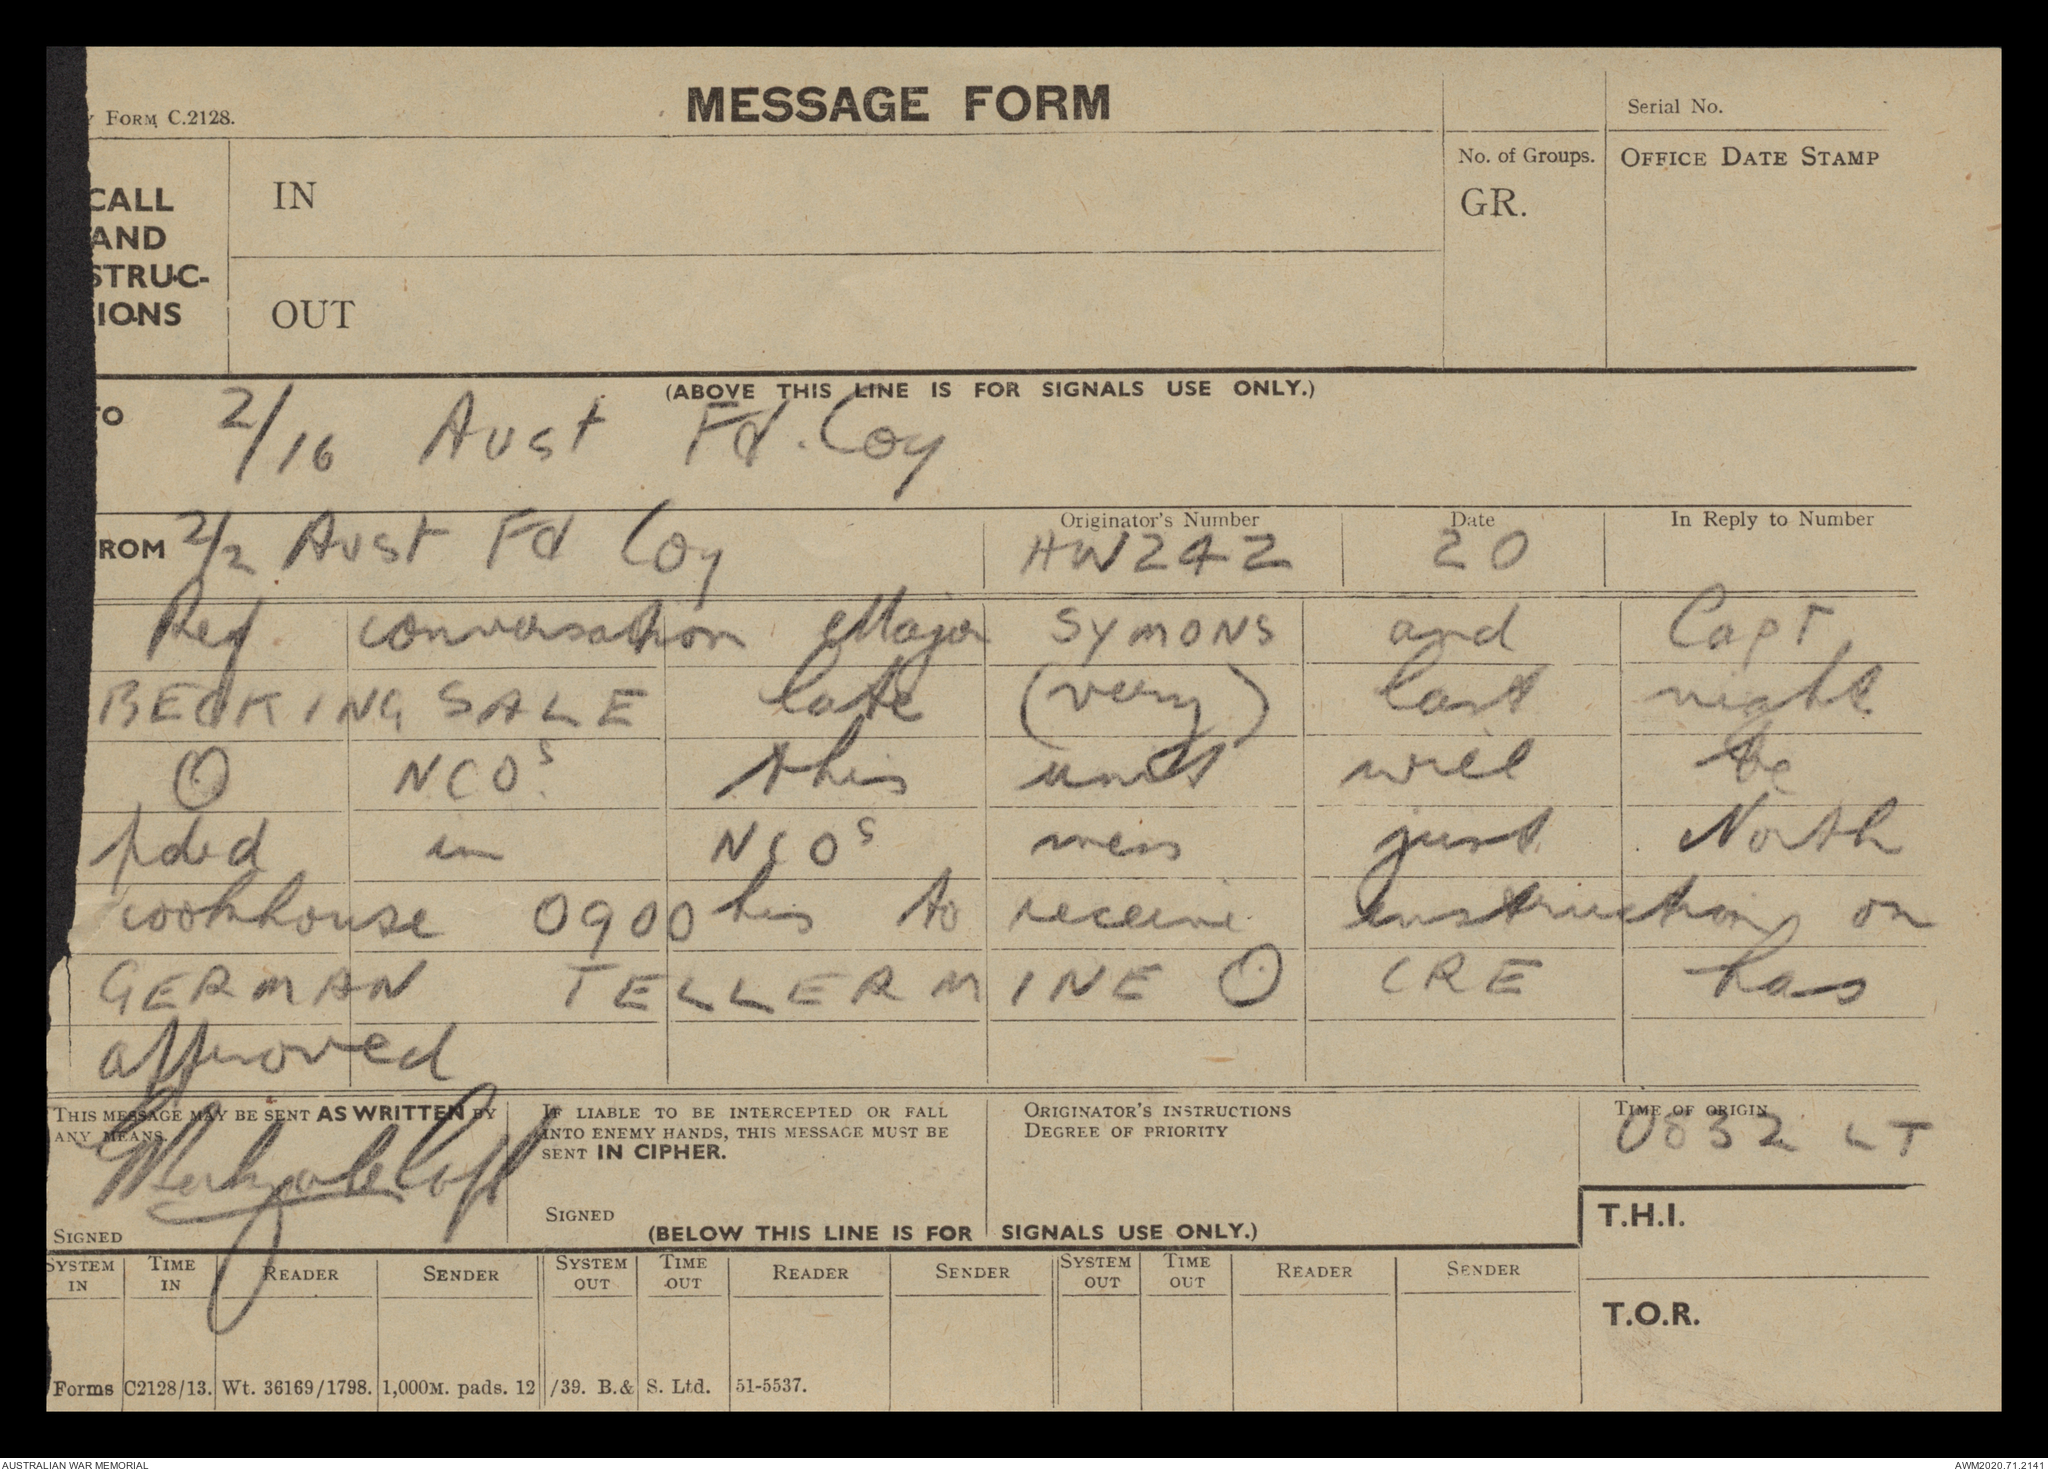 Y FORM C.2128.
MESSAGE FORM
Serial No.
CALL
AND
STRUC-
IONS
IN
OUT
No. of Groups.
GR.
OFFICE DATE STAMP
(ABOVE THIS LINE IS FOR SIGNALS USE ONLY.)
TO 2/16 Aust Fd. Coy
ROM 2/2 Aust Fd Coy
Originator's Number
HW242
Date
20
In Reply to Number
Ref conversation Major SYMONS and Capt.
BECKINGSALE late (very) last night
O NCOs this unit will be
pded in NCOs mess just North
cookhouse 0900 hrs to receive instruction on
GERMAN TELLERMINE O CRE has
approved
THIS MESSAGE MAY BE SENT AS WRITTEN BY
ANY MEANS.
Capt
SIGNED
IF LIABLE TO BE INTERCEPTED OR FALL
INTO ENEMY HANDS, THIS MESSAGE MUST BE
SENT IN CIPHER.
SIGNED
ORIGINATOR'S INSTRUCTIONS
DEGREE OF PRIORITY
TIME OF ORIGIN
0832 LT
(BELOW THIS LINE IS FOR SIGNALS USE ONLY.)
T.H.I.
T.O.R.
SYSTEM IN TIME IN READER SENDER SYSTEM OUT TIME OUT READER SENDER SYSTEM OUT TIME OUT READER SENDER
Forms C2128/13. Wt. 36169/1798. 1,000M. pads. 12/39. B.& S. Ltd. 51-5537.
AUSTRALIAN WAR MEMORIAL
AWM2020.71.2141